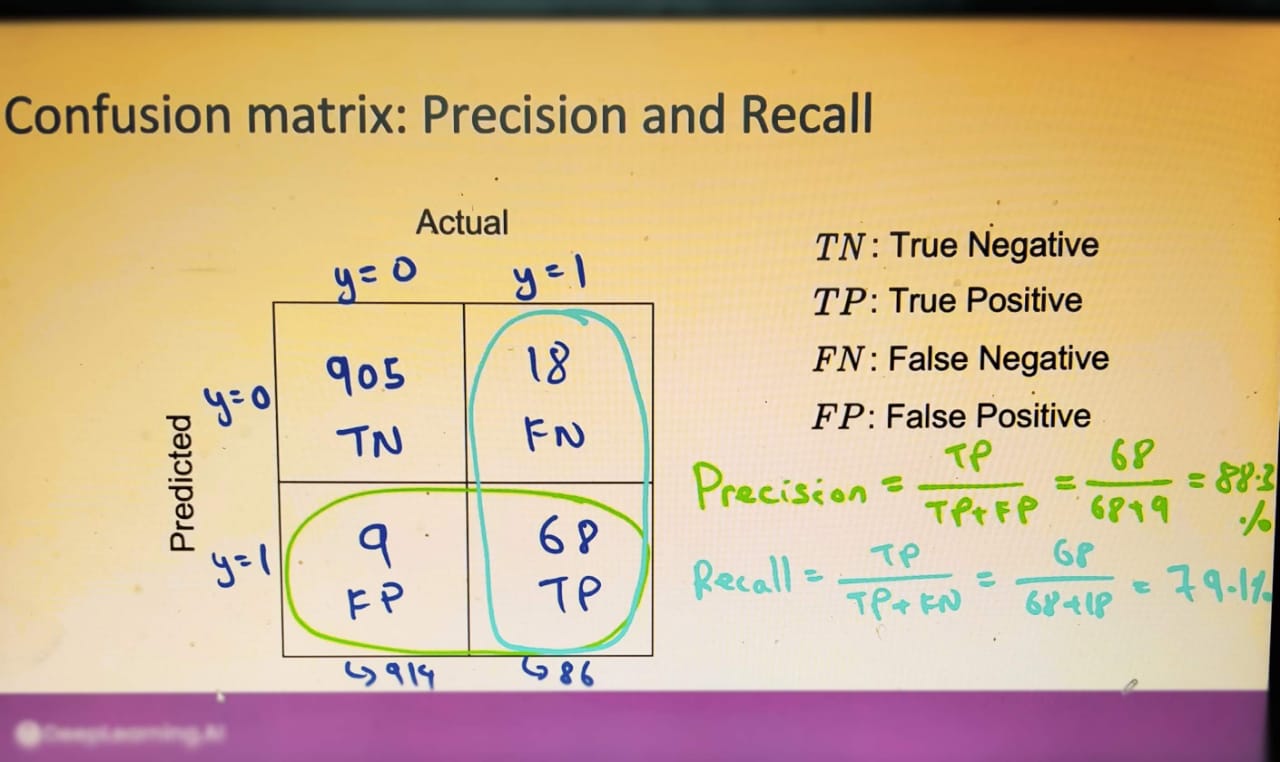 Confusion matrix: Precision and Recall
Actual
y=0 y=1
Predicted
y=0
905 18
TN FN
y=1
9 68
FP TP
↳914 ↳86
TN: True Negative
TP: True Positive
FN: False Negative
FP: False Positive
Precision = TP / TP+FP = 68 / 68+9 = 88.3 %
Recall = TP / TP+FN = 68 / 68+18 = 79.1%
DeepLearning.AI